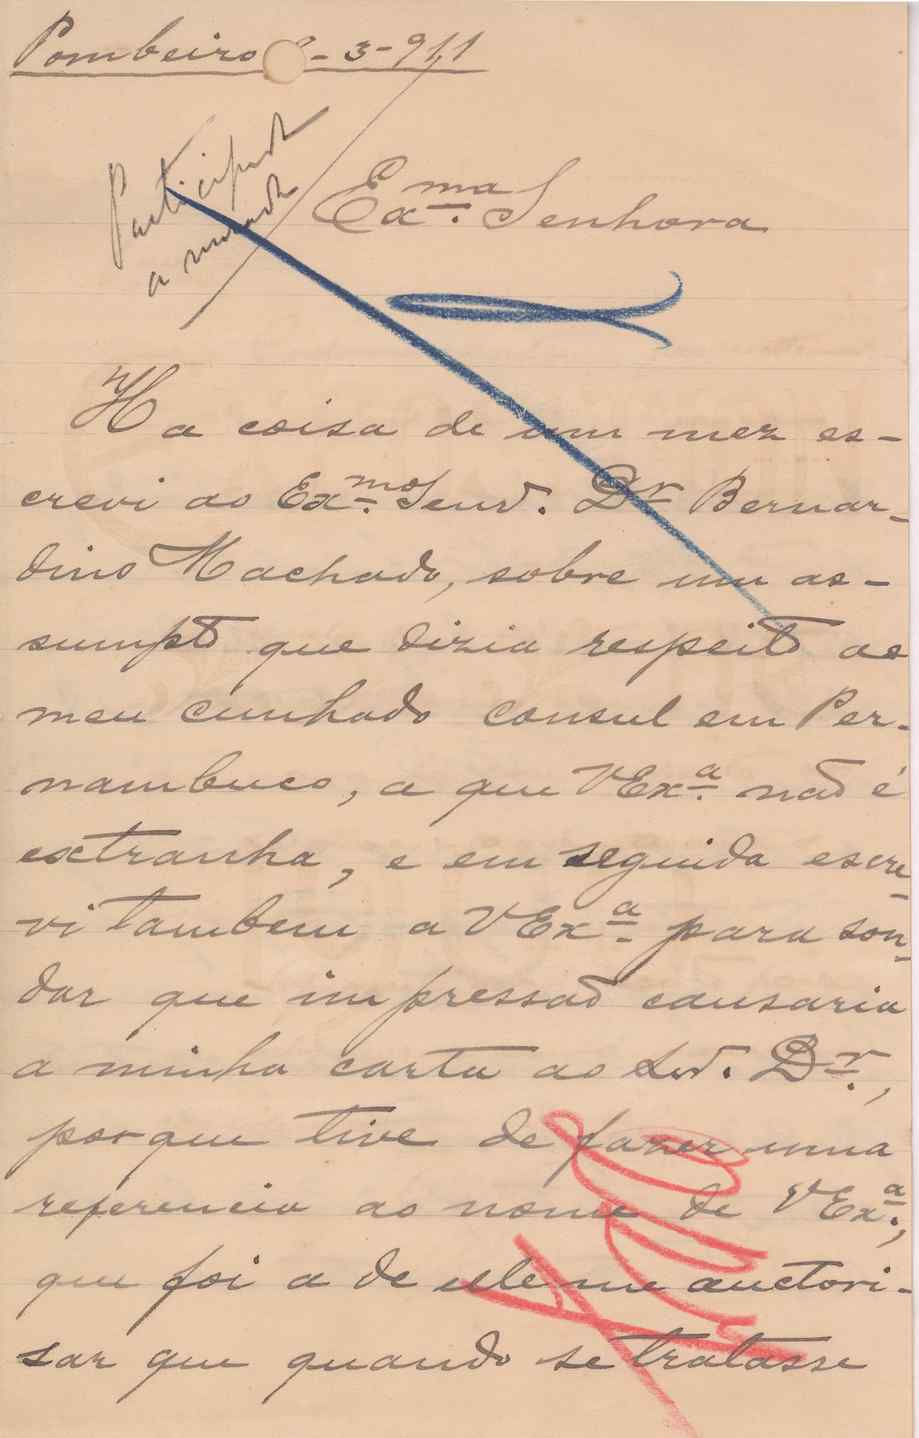 Pombeiro -3-911
Participada
a morada
Exma. Senhora
Ha coisa de um mez es-
crevi ao Exmo. Senr. Dr Bernar-
dino Machado, sobre um as-
sumpto que dizia respeito ao
meu cunhado consul em Per-
nambuco, a que VExa. não é
extranha, e em seguida escre-
vi tambem a VExa. para son-
dar que impressão causaria
a minha carta ao Snr. Dr.,
porque tive de fazer uma
referencia ao nome de VExa.,
que foi a de ele me auctori-
sar que quando se tratasse